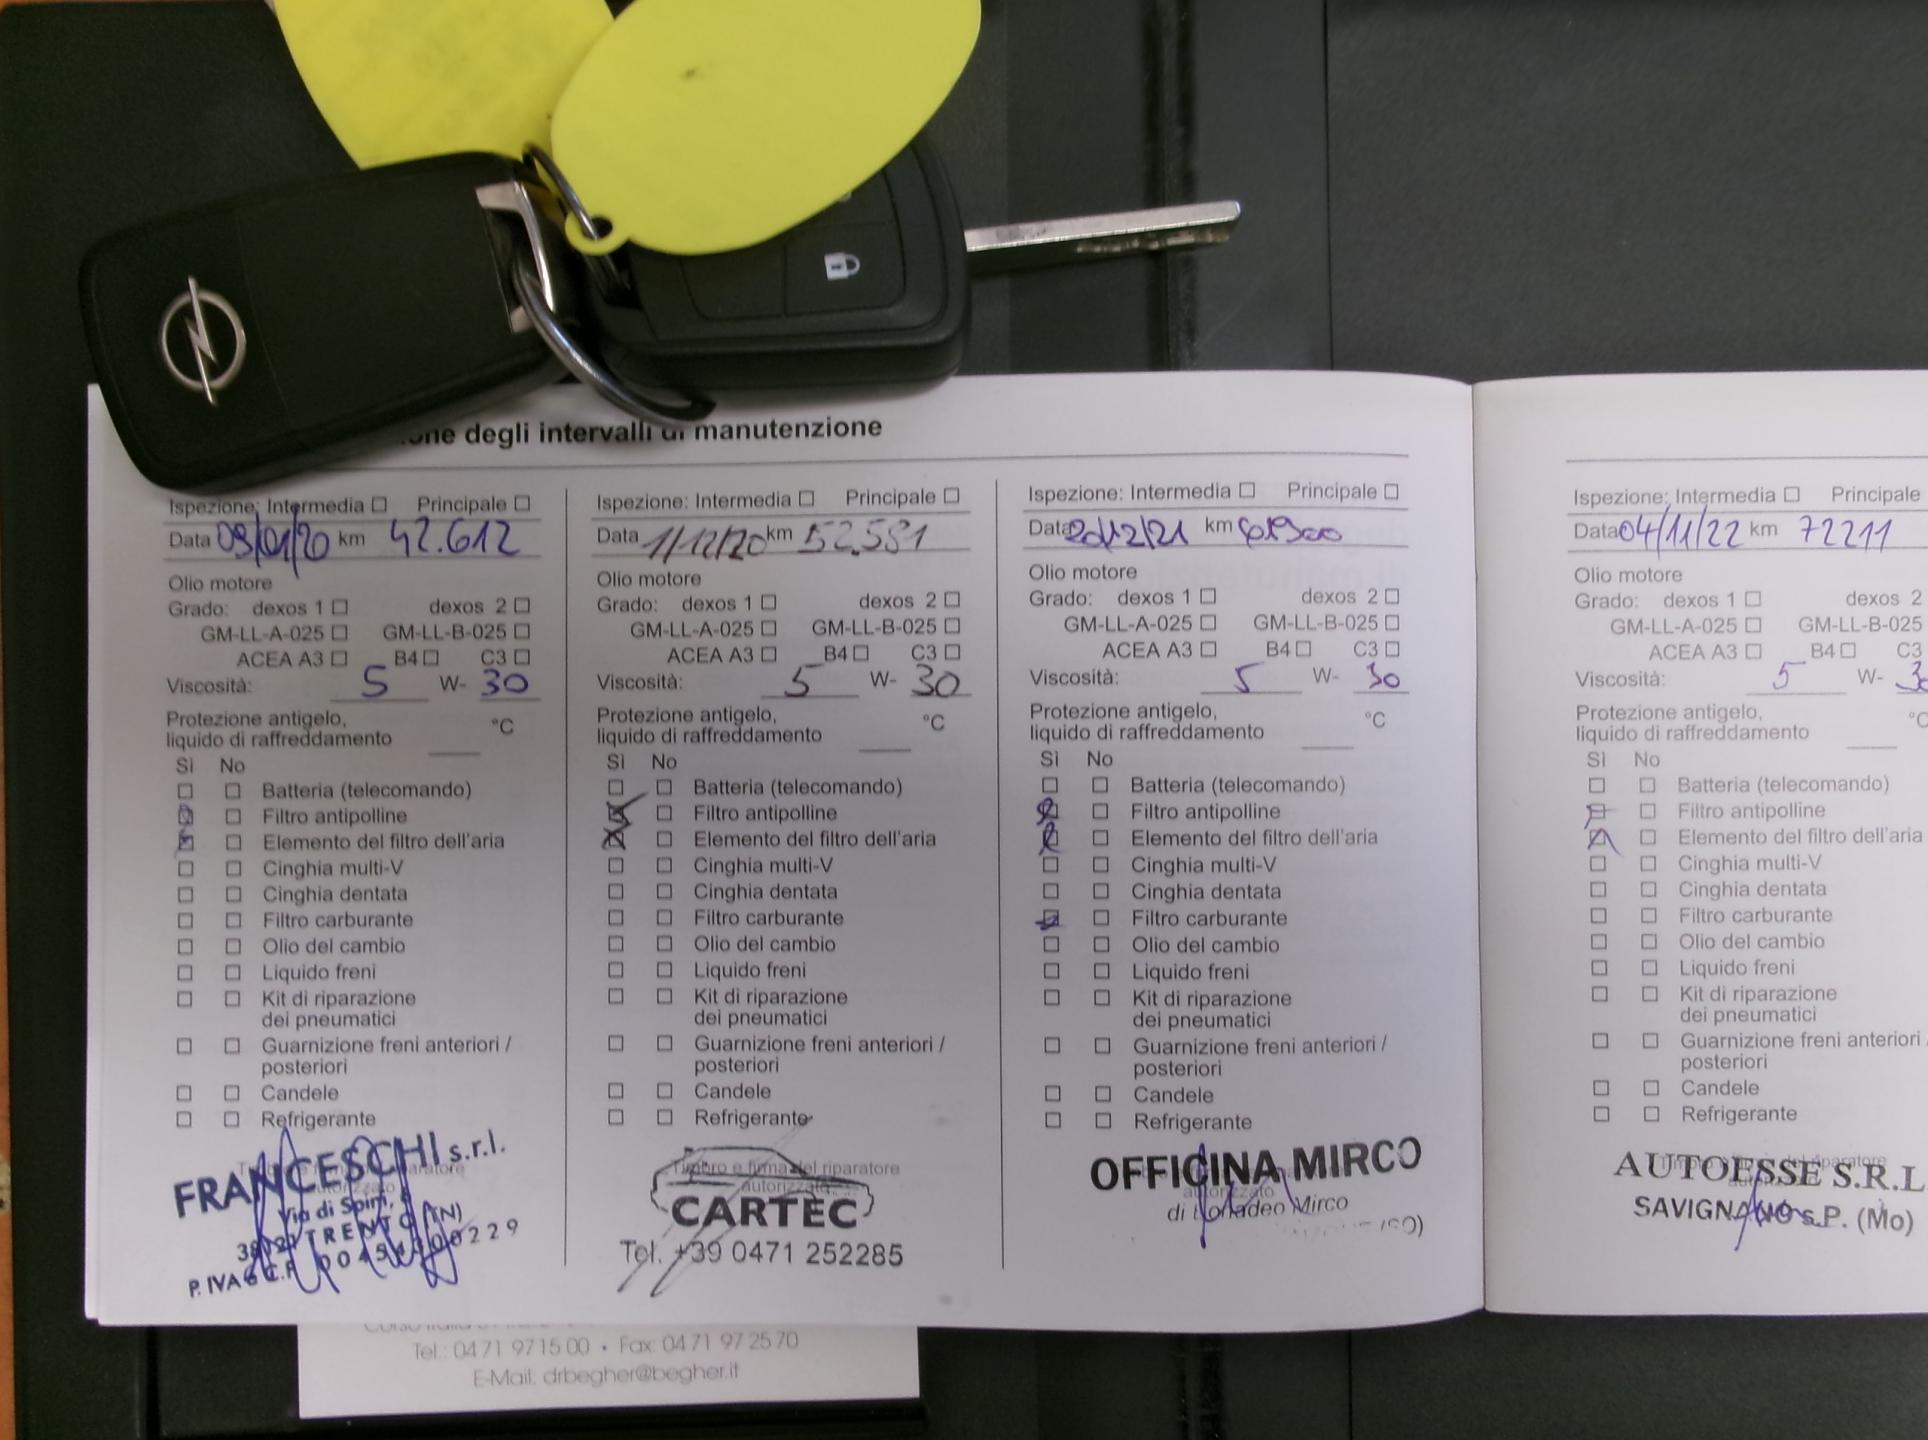 one degli intervalli di manutenzione
Ispezione: Intermedia ☐ Principale ☐
Data 09/01/20 km 42.612
Olio motore
Grado: dexos 1 ☐ dexos 2 ☐
GM-LL-A-025 ☐ GM-LL-B-025 ☐
ACEA A3 ☐ B4 ☐ C3 ☐
Viscosità: 5 W- 30
Protezione antigelo,
liquido di raffreddamento °C
Sì No
Batteria (telecomando)
Filtro antipolline
Elemento del filtro dell'aria
Cinghia multi-V
Cinghia dentata
Filtro carburante
Olio del cambio
Liquido freni
Kit di riparazione
dei pneumatici
Guarnizione freni anteriori /
posteriori
Candele
Refrigerante
FRANCESCHI s.r.l.
Via di Spini,
TRENTO (TN)
P. IVA
Ispezione: Intermedia ☐ Principale ☐
Data 1/12/20 km 52.581
Olio motore
Grado: dexos 1 ☐ dexos 2 ☐
GM-LL-A-025 ☐ GM-LL-B-025 ☐
ACEA A3 ☐ B4 ☐ C3 ☐
Viscosità: 5 W- 30
Protezione antigelo,
liquido di raffreddamento °C
Sì No
Batteria (telecomando)
Filtro antipolline
Elemento del filtro dell'aria
Cinghia multi-V
Cinghia dentata
Filtro carburante
Olio del cambio
Liquido freni
Kit di riparazione
dei pneumatici
Guarnizione freni anteriori /
posteriori
Candele
Refrigerante
Timbro e firma del riparatore
autorizzato
CARTEC
Tel. +39 0471 252285
Ispezione: Intermedia ☐ Principale ☐
Data 20/12/21 km
Olio motore
Grado: dexos 1 ☐ dexos 2 ☐
GM-LL-A-025 ☐ GM-LL-B-025 ☐
ACEA A3 ☐ B4 ☐ C3 ☐
Viscosità: 5 W- 30
Protezione antigelo,
liquido di raffreddamento °C
Sì No
Batteria (telecomando)
Filtro antipolline
Elemento del filtro dell'aria
Cinghia multi-V
Cinghia dentata
Filtro carburante
Olio del cambio
Liquido freni
Kit di riparazione
dei pneumatici
Guarnizione freni anteriori /
posteriori
Candele
Refrigerante
OFFICINA MIRCO
autorizzato
di Mirco
Ispezione: Intermedia ☐ Principale
Data 04/11/22 km 72211
Olio motore
Grado: dexos 1 ☐ dexos 2
GM-LL-A-025 ☐ GM-LL-B-025
ACEA A3 ☐ B4 ☐ C3
Viscosità: 5 W-
Protezione antigelo,
liquido di raffreddamento °C
Sì No
Batteria (telecomando)
Filtro antipolline
Elemento del filtro dell'aria
Cinghia multi-V
Cinghia dentata
Filtro carburante
Olio del cambio
Liquido freni
Kit di riparazione
dei pneumatici
Guarnizione freni anteriori /
posteriori
Candele
Refrigerante
AUTOESSE S.R.L
SAVIGNANO s.P. (Mo)
Tel.: 0471 971500 • Fax: 0471 972570
E-Mail: drbegher@begher.it